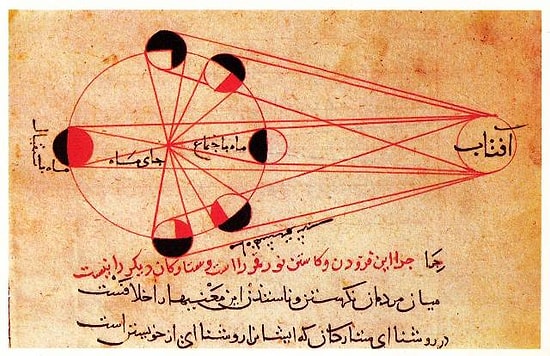 افتاب
ماه باجتماع
جای ماه
ماه باستقبال
جرا این فزودن و کاستن نور قمر راست و ستارکان دیکر را نیست
میان مردمان نکرستن این معنیها را خلافست
در روشنا ای ستارکان که ایشانرا روشنا ای از خویشتن است